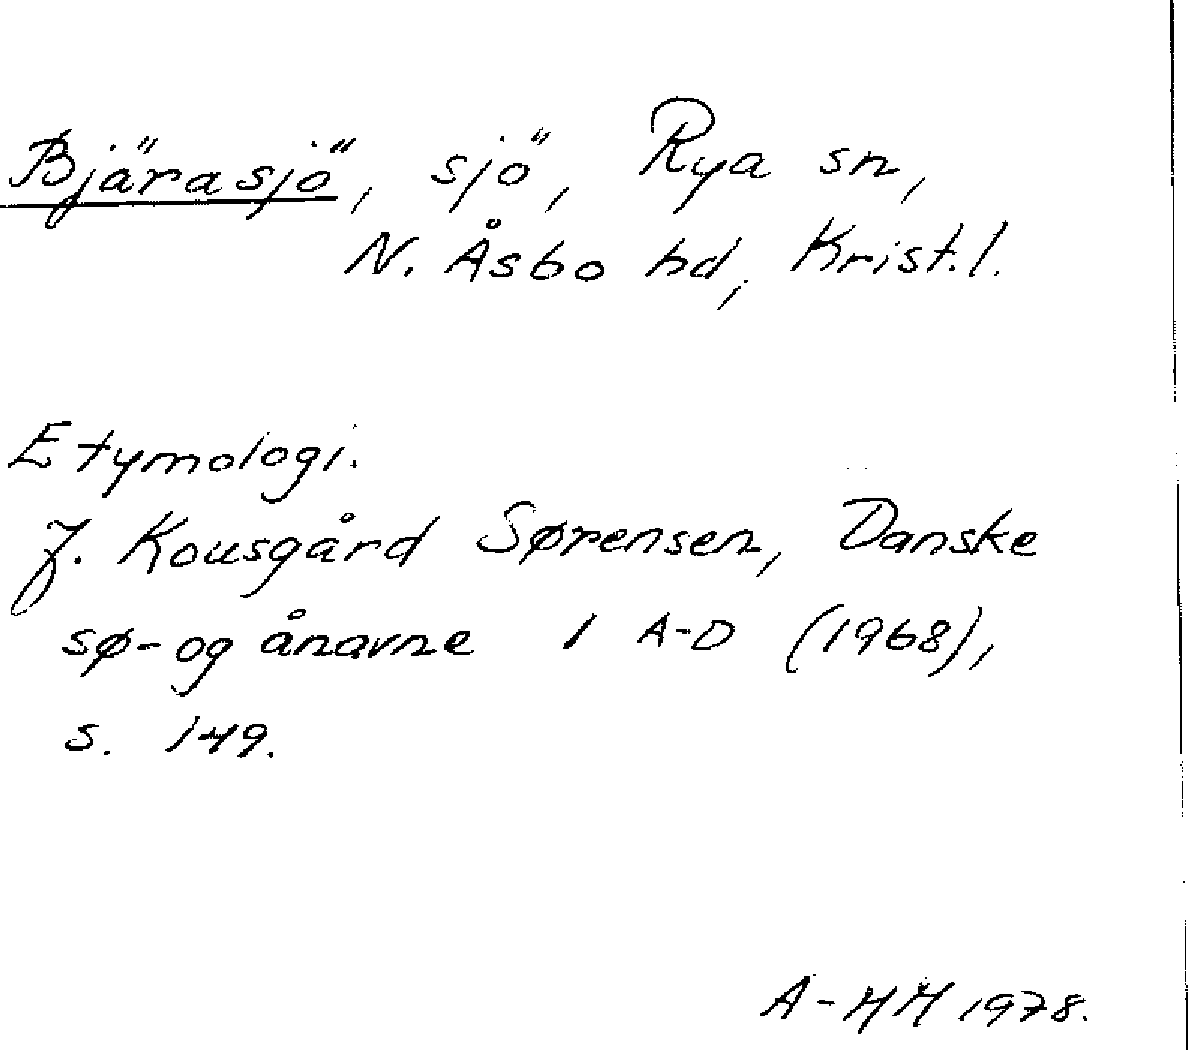 Bjärasjö, sjö, Rya sn,
N. Åsbo hd, Krist.l.
Etymologi.
J. Kousgård Sørensen, Danske
sø- og ånavne 1 A-D (1968),
s. 149.
A-HH 1978.